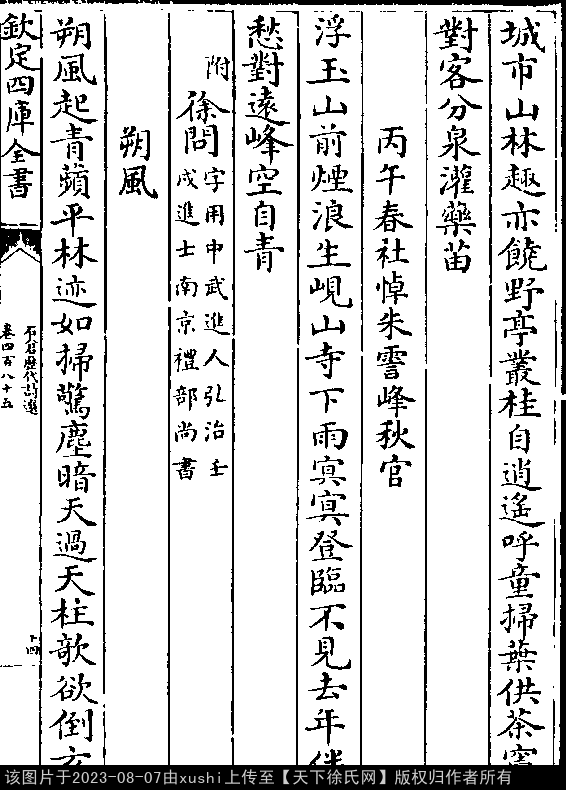 城市山林趣亦饒野亭叢桂自逍遙呼童掃葉供茶
對客分泉灌藥苗
丙午春社悼朱雪峰秋官
浮玉山前煙浪生峴山寺下雨冥冥登臨不見去年
愁對遠峰空自青
附 徐問 字用中武進人弘治壬
戌進士南京禮部尚書
朔風
朔風起青蘋平林迹如掃驚塵暗天過天柱欹欲倒
欽定四庫全書
石倉歷代詩選
卷四百八十五
十四
该图片于2023-08-07由xushi上传至【天下徐氏网】版权归作者所有